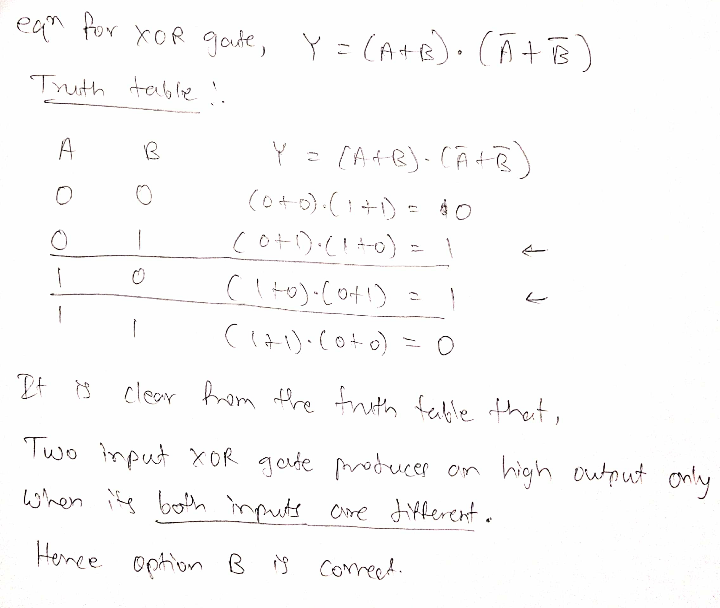 eqn for XOR gate, Y = (A+B)·(Ā+B̄)
Truth table :.
A B Y = (A+B)·(Ā+B̄)
0 0 (0+0)·(1+1) = 0
0 1 (0+1)·(1+0) = 1 ←
1 0 (1+0)·(0+1) = 1 ←
1 1 (1+1)·(0+0) = 0
It is clear from the truth table that,
Two input XOR gate produces an high output only
when its both inputs are different.
Hence option B is correct.